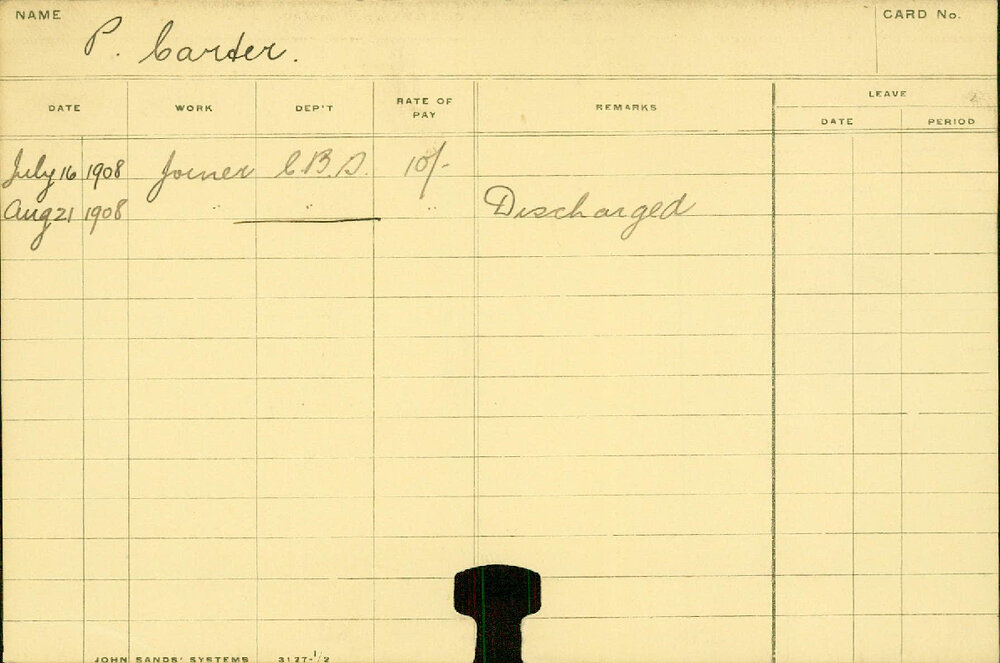 NAME
CARD No.
P. Carter.
DATE WORK DEP'T RATE OF PAY REMARKS LEAVE
DATE PERIOD
July 16 1908 Joiner C.B.S. 10/-
Aug 21 1908 " " " Discharged
JOHN SANDS' SYSTEMS 3127-1/2